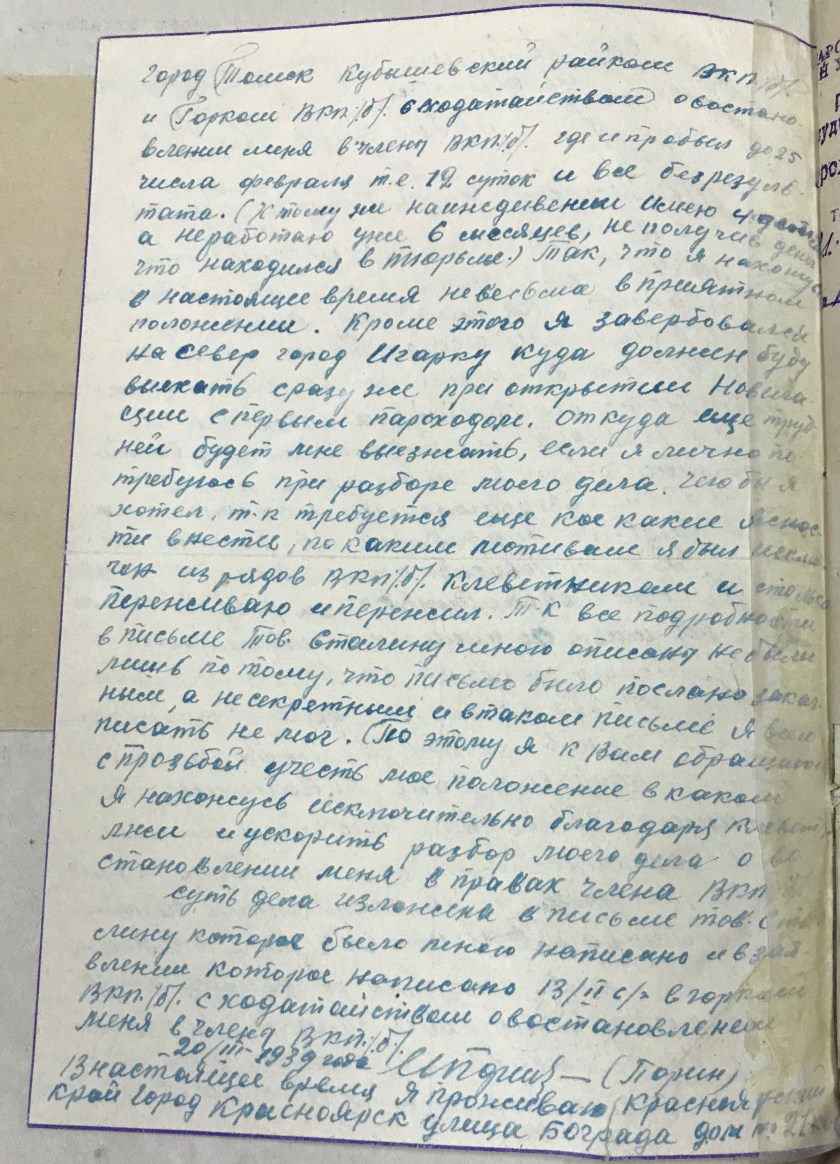 город Томск Кубышевский райком ВКП/б/.
и Горком ВКП/б/. с ходатайством о востано-
влении меня в члену ВКП/б/. где и пробыл до 25
числа февраля т.е. 12 суток и все безрезуль-
тата. (К тому же наиждивении имею 4 детей
а неработаю уже 6 месяцев, не получив денег
что находился в тюрьме.) Так, что я нахожусь
в настоящее время невесьма в приятном
положении. Кроме этого я завербовался
на север город Игарку куда должен буду
выехать сразу же при открытии Новига
ции с первым пароходом. откуда еще труд-
ней будет мне выезжать, если я лично по
требуюсь при разборе моего дела. чего бы я
хотел, т.к требуется еще кое какие яснос-
ти внести, по каким мотивам я был исклю-
чен из рядов ВКП/б/. клеветниками и столько
переживаю и пережил. Т.К все подробности
в письме тов. Сталину мною описаны не были
лишь потому, что письмо было послано заказ-
ным, а несекретным и втаком письме я всего
писать не мог. (По этому я к Вам обращаюсь
с прозьбой учесть мое положение в каком
я нахожусь исключительно благодаря клевет
лжи и ускорить разбор моего дела о во
становлении меня в правах члена ВКП/б/
суть дела изложена в письме тов. Ста
лину которое было мною написано и в заяв-
влении которое написано 13/II с/г в горком
ВКП/б/. с ходатайством о востановлении
меня в члену ВКП/б/.
20/III-1939 года (Порин)
В настоящее время я проживаю Красноярский
край город Красноярск улица Бограда дом №